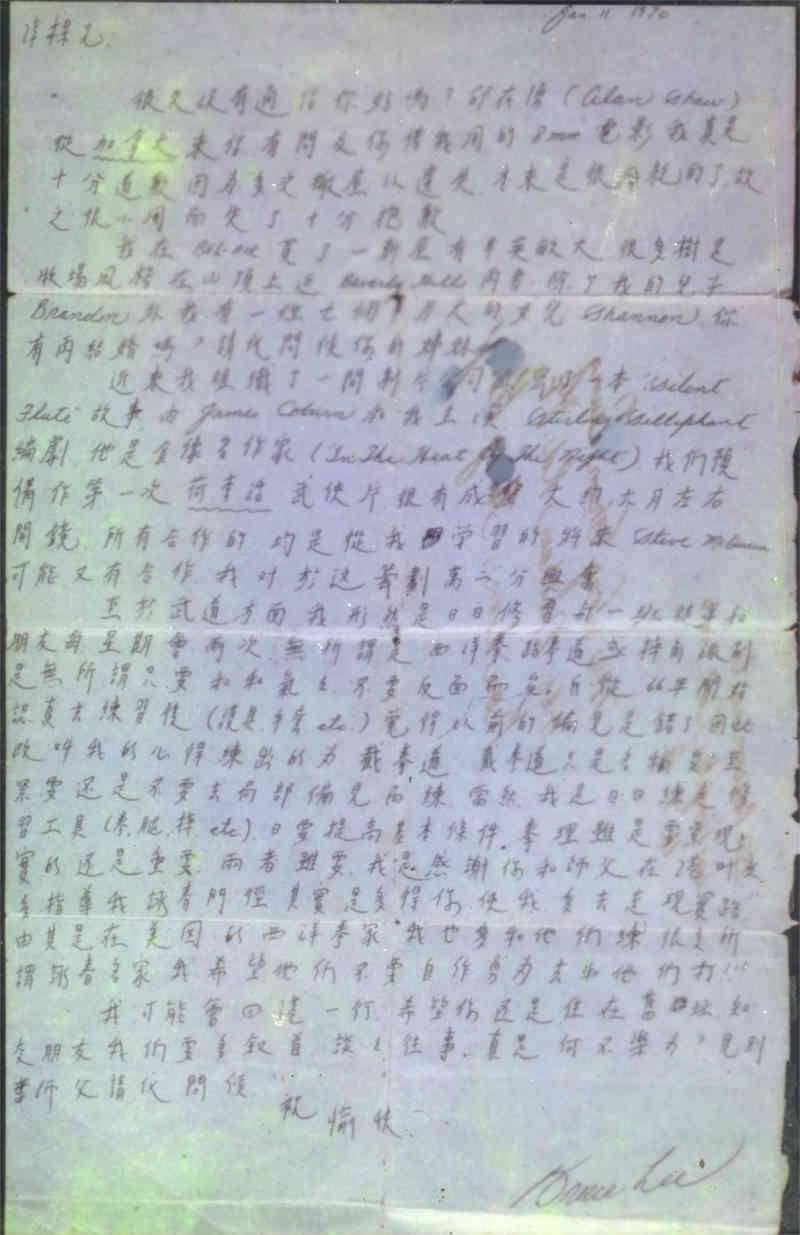 Jan 11 1970
淳樑兄
很久没有通信你好嗎？邵在僑 (Alan Shaw)
從加拿大來信有問及你借我用的 8mm 電影我真是
十分道歉因為多次搬屋以遺失 本來是很
之很小用而失了十分抱歉
我在 Bel-air 買了一新屋有半英畝大 很多樹是
牧場風格在山頂上近 Beverly Hills 內者 除了我的兒子
Brandon 外我有一位七個月大的女兒 Shannon 你
有再結婚嗎？請代問候你的姊妹
近來我組織了一間制片公司 一本 "Silent
Flute" 故事 由 James Coburn 和我主演 Stirling Silliphant
編劇 他是金像名作家 (In The Heat of The Night) 我們預
備作第一次荷李活武俠片很有成 大約六月左右
開鏡 所有合作的均是從我學習的將來 Steve McQueen
可能又有合作 我对於这籌劃萬二分興奮
至於武道方面我形然是日日修習 和
朋友每星期會兩次 無所謂是西洋拳 跆拳道或摔角派別
是無所謂只要和和氣气 不要反面而 自從66年開始
認真去練習後 (護具手套 etc.) 覺得以前的偏見是錯了因此
改叫我的心得練出的为截拳道 截拳道只是名稱 至
緊要还是不要去局部偏見而練 當然我是日日練走修
習工具 (拳, 腿, 摔, etc.) 日要提高基本條件 拳理雖是重要現
實的還是重要 兩者雖要 我是感謝你和師父在港时
多指導我詠春門徑 其實是多得你 使我多去走現實路
由其是在美国的西洋拳家 我也多和他們練 很多所
謂詠春名家我希望他們不要自作為去和他們打!!!
我可能會回港一行 希望你還是住在舊址 知
交朋友我們要多叙首談談往事 真是何不樂为？見到
葉師父請代問候
祝
愉快
Bruce Lee